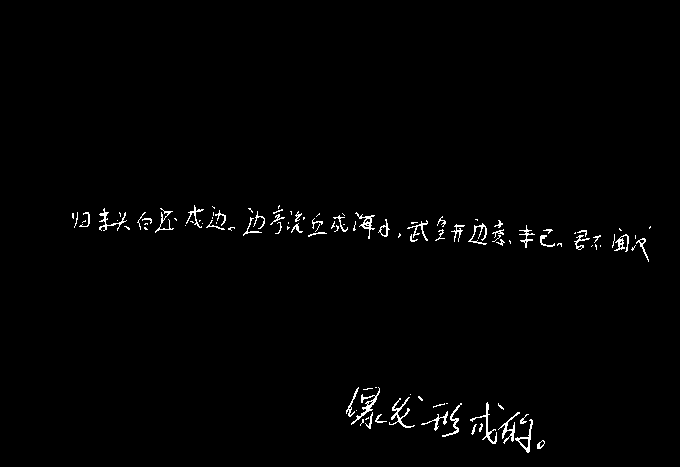 归来头白还戍边。边亭流血成海水，武皇开边意未已。君不闻汉
爆发形成的。